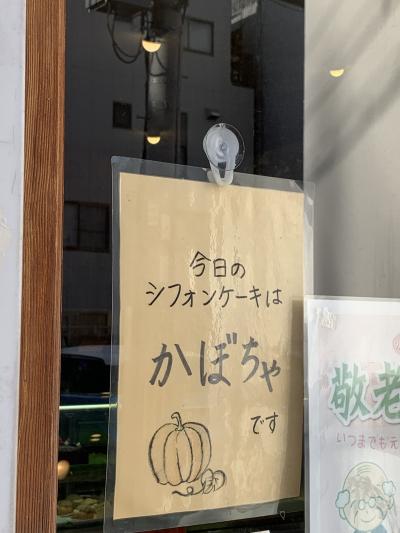 今日の
シフォンケーキは
かぼちゃ
です
敬老
いつまでも元